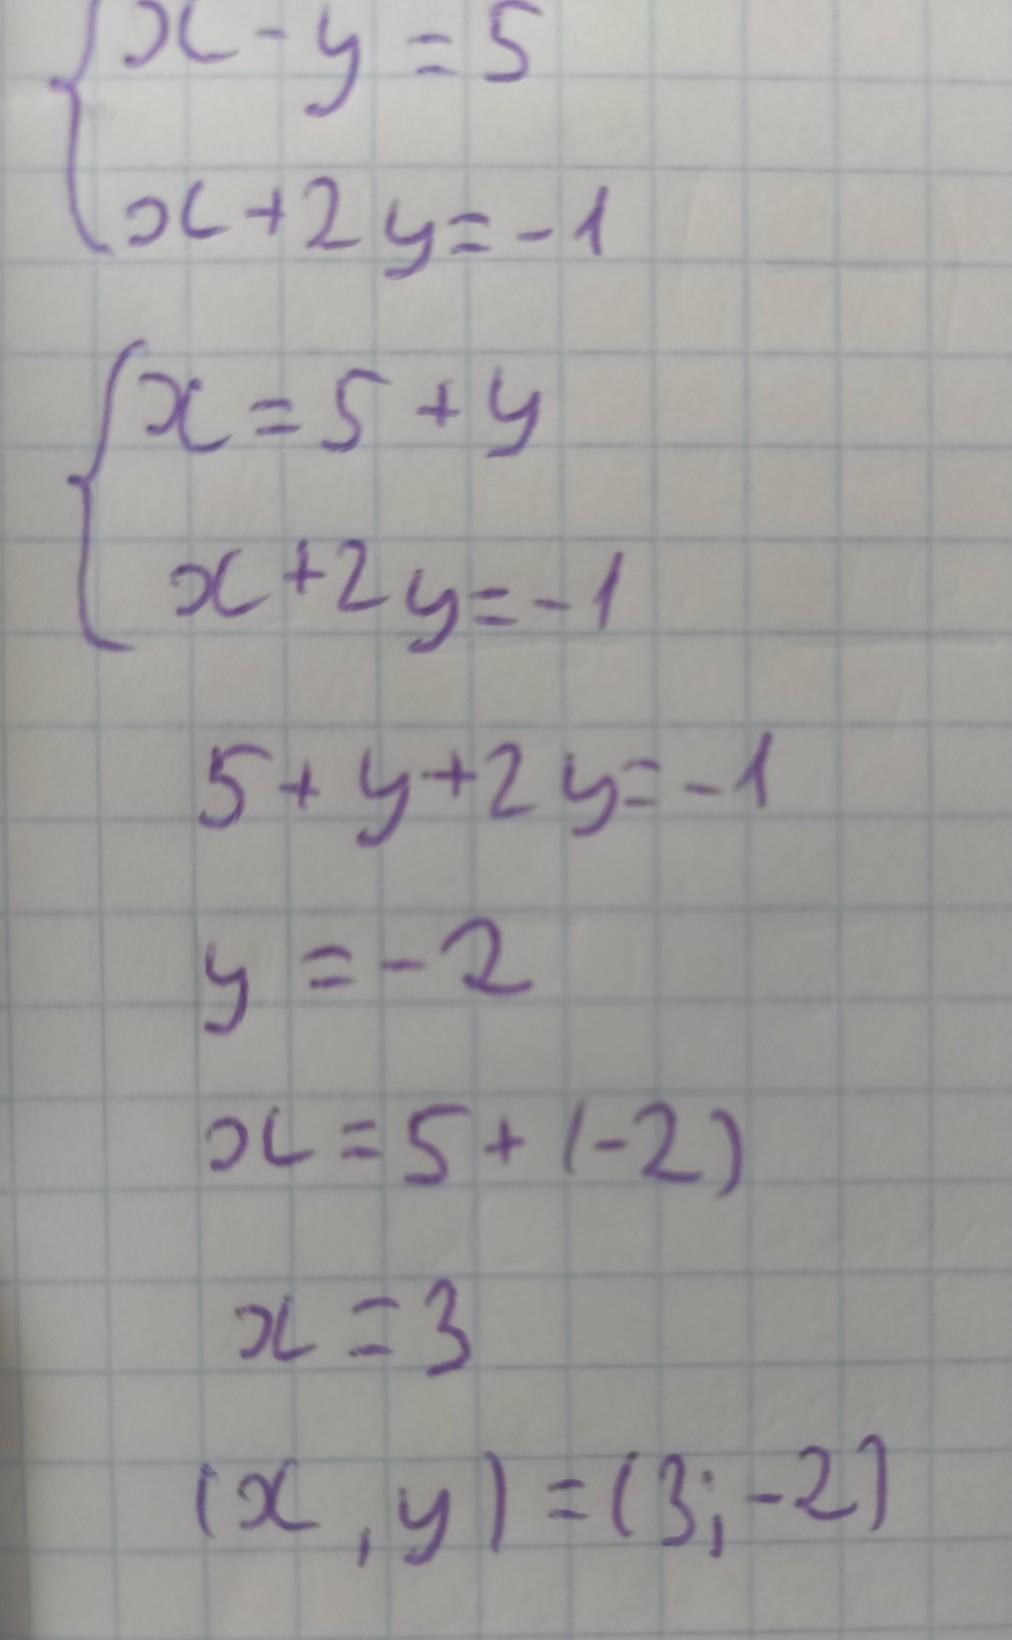 x - y = 5
x + 2y = -1
x = 5 + y
x + 2y = -1
5 + y + 2y = -1
y = -2
x = 5 + (-2)
x = 3
(x, y) = (3; -2)